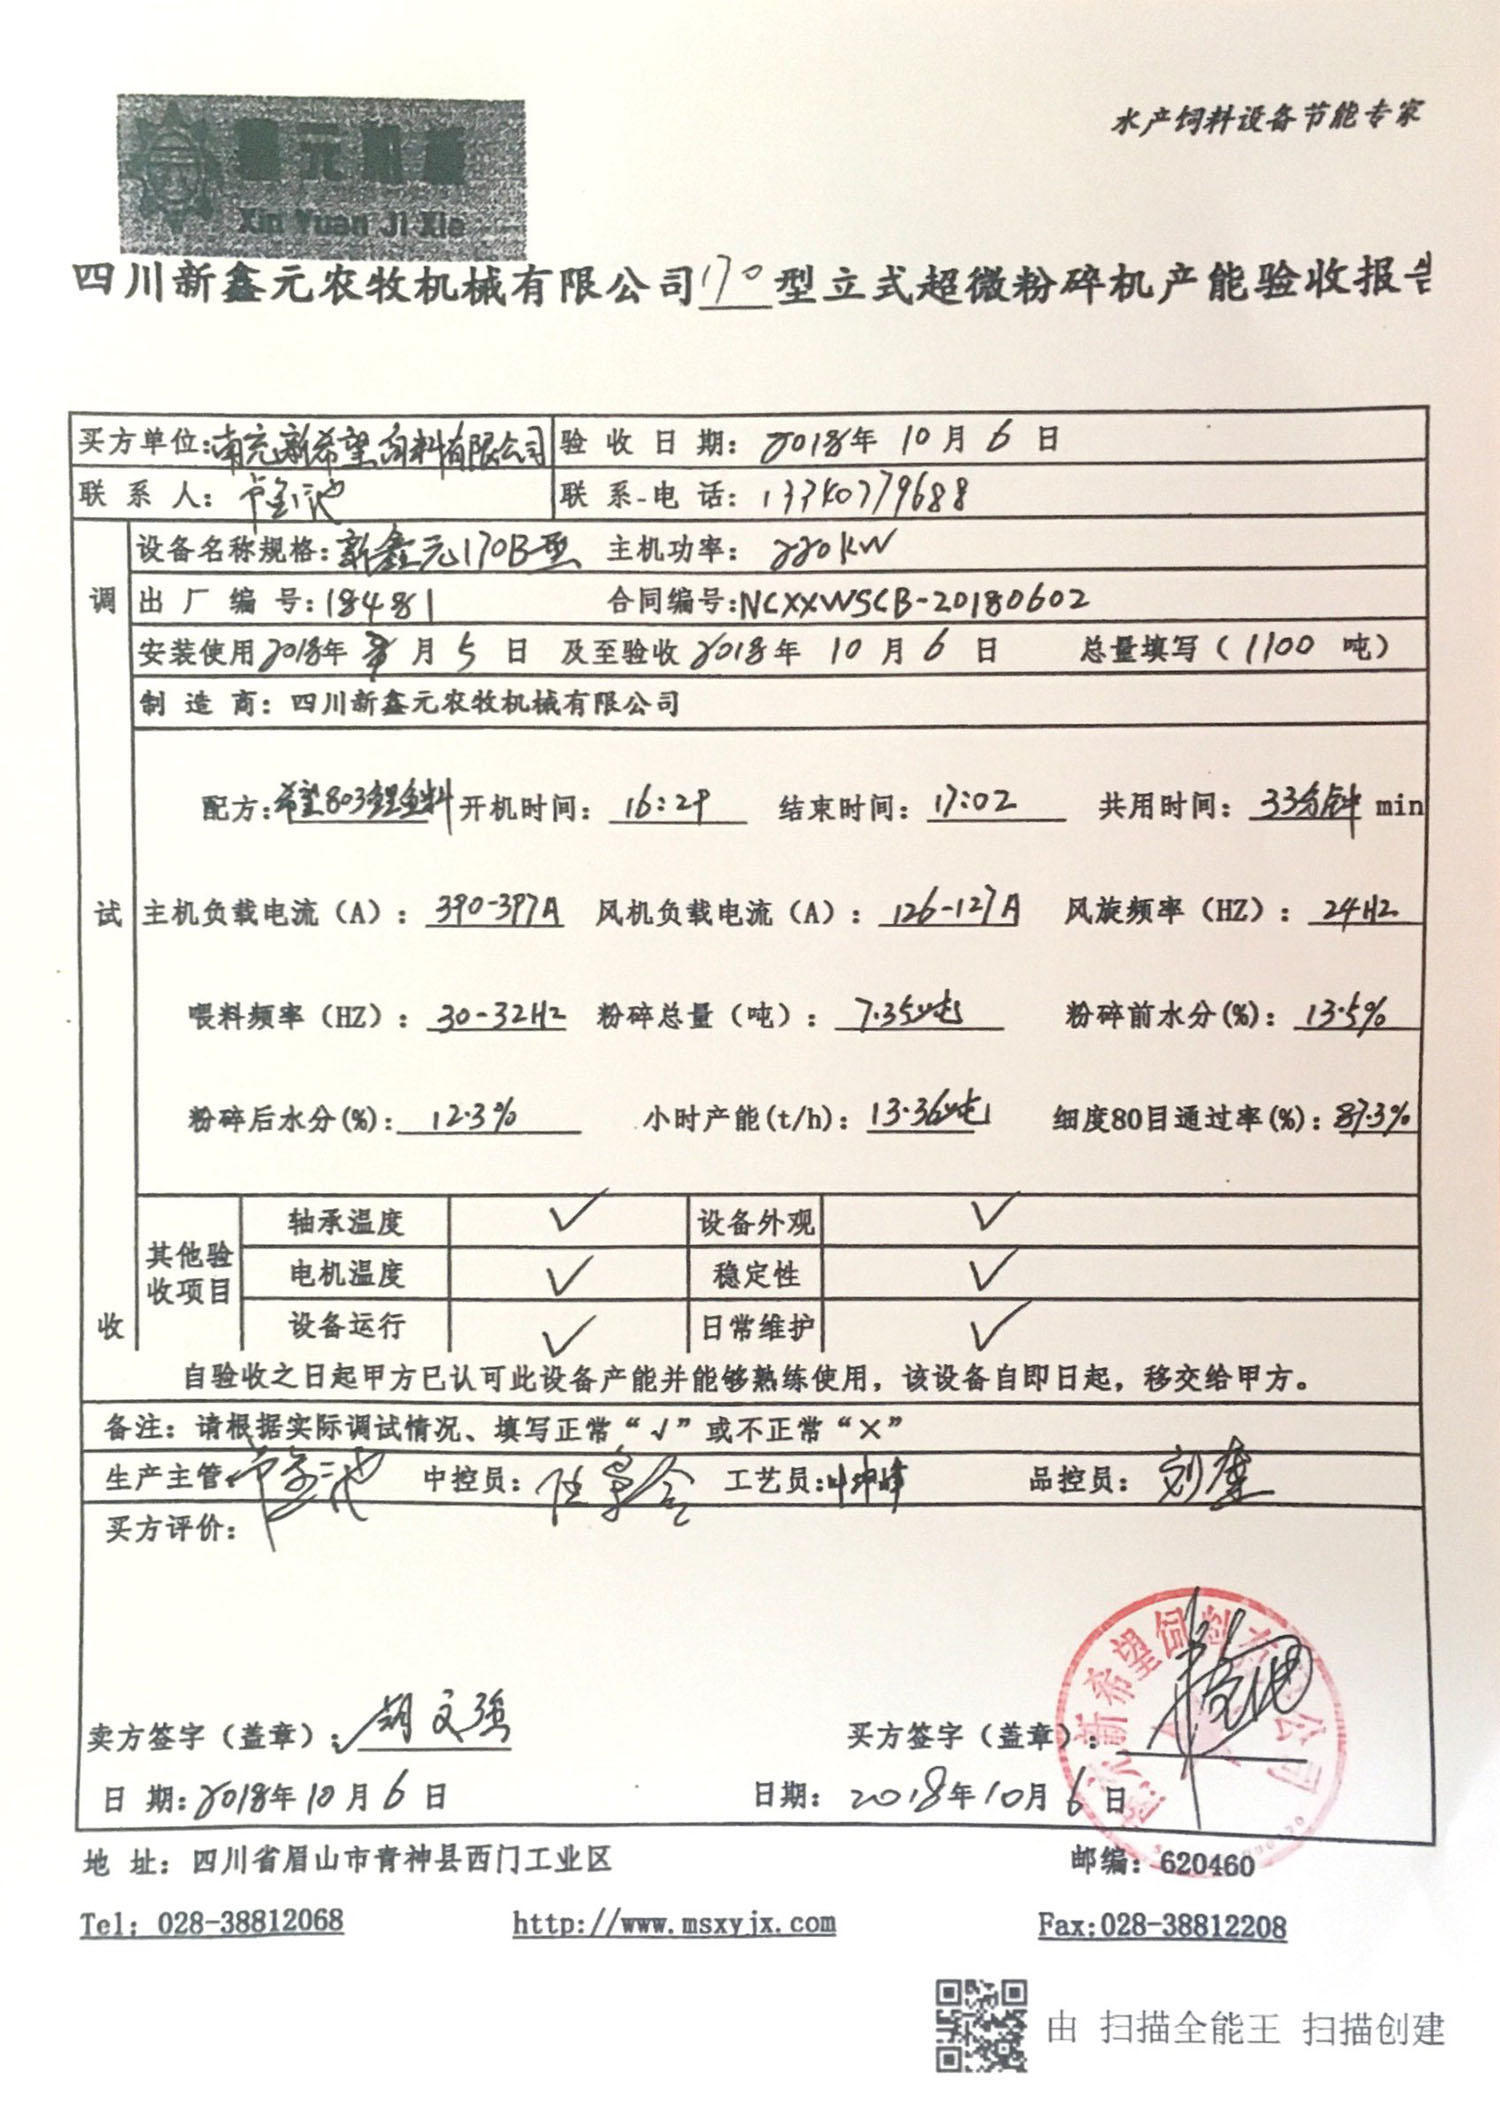 水产饲料设备节能专家
鑫元机械
Xin Yuan Ji Xie
四川新鑫元农牧机械有限公司170型立式超微粉碎机产能验收报告
买方单位:南充新希望饲料有限公司 验收日期:2018年10月6日
联系人: 联系-电话:13340779688
设备名称规格:新鑫元170B型 主机功率:220KW
调 出厂编号:18481 合同编号:NCXXWSCB-20180602
安装使用2018年 月5日 及至验收2018年10月6日 总量填写(1100吨)
制造商:四川新鑫元农牧机械有限公司
配方:希望803鲤鱼料 开机时间:16:29 结束时间:17:02 共用时间:33分钟min
试 主机负载电流(A):390-397A 风机负载电流(A):126-127A 风旋频率(HZ):24HZ
喂料频率(HZ):30-32HZ 粉碎总量(吨):7.35吨 粉碎前水分(%):13.5%
粉碎后水分(%):12.3% 小时产能(t/h):13.36吨 细度80目通过率(%):87.3%
轴承温度 ✓ 设备外观 ✓
其他验收项目 电机温度 ✓ 稳定性 ✓
收 设备运行 ✓ 日常维护 ✓
自验收之日起甲方已认可此设备产能并能够熟练使用,该设备自即日起,移交给甲方。
备注:请根据实际调试情况、填写正常“√”或不正常“×”
生产主管: 中控员: 工艺员: 品控员:
买方评价:
新希望饲料有限公司
卖方签字(盖章):胡文强 买方签字(盖章):
日期:2018年10月6日 日期:2018年10月6日
地址:四川省眉山市青神县西门工业区 邮编:620460
Tel:028-38812068 http://www.msxyjx.com Fax:028-38812208
由 扫描全能王 扫描创建